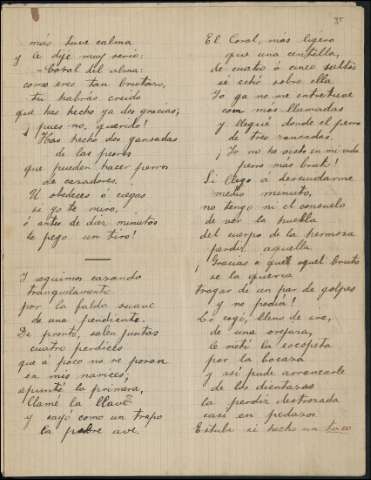 más tuve calma
y le dije muy serio:
–Coral del alma:
como eres tan brutazo,
tu habrás creido
que has hecho ya dos gracias;
¡pues no, querido!
¡Has hecho dos gansadas
de las peores
que pueden hacer perros
de cazadores.
U obedeces á ciegas
si yo te miro,
ó antes de diez minutos
te pego un tiro!
Y seguimos cazando
tranquilamente
por la falda suave
de una pendiente.
De pronto, salen juntas
cuatro perdices
que á poco no se posan
en mis narices;
apunté la primera,
llamé la llave
y cayó como un trapo
la pobre ave.
El Coral, más ligero
que una centella,
de cuatro ó cinco saltos
se echó sobre ella
Yo ya no me entretuve
con más llamadas
y llegué donde el perro
de tres zancadas.
¡Yo no he visto en mi vida
perro más bruto!
Si llego á descuidarme
medio minuto,
no tengo ni el consuelo
de ver la huella
del cuerpo de la hermosa
perdiz aquella.
¡Gracias á que aquel bruto
se la quería
tragar de un par de golpes
y no podía!
Le cogí, lleno de ira,
de una oreja,
le metí la escopeta
por la bocaza
y así pude arrancarle
de los dientazos
la perdiz destrozada
casi en pedazos
Estube si hecho un taco